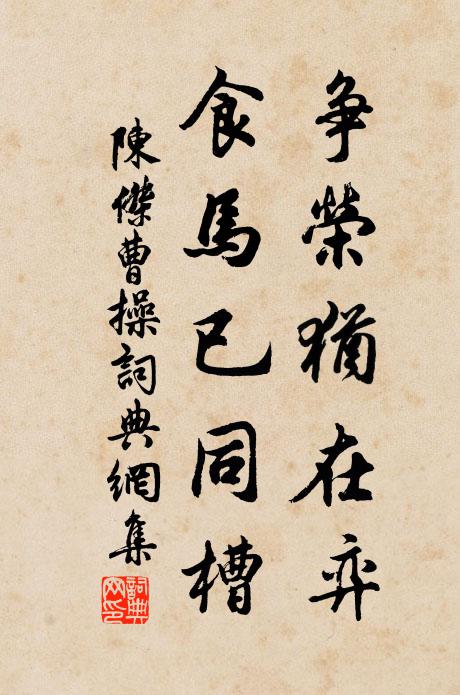 争榮猶在弈
食馬已同槽
陳傑曹操詞典網集
詞典網印